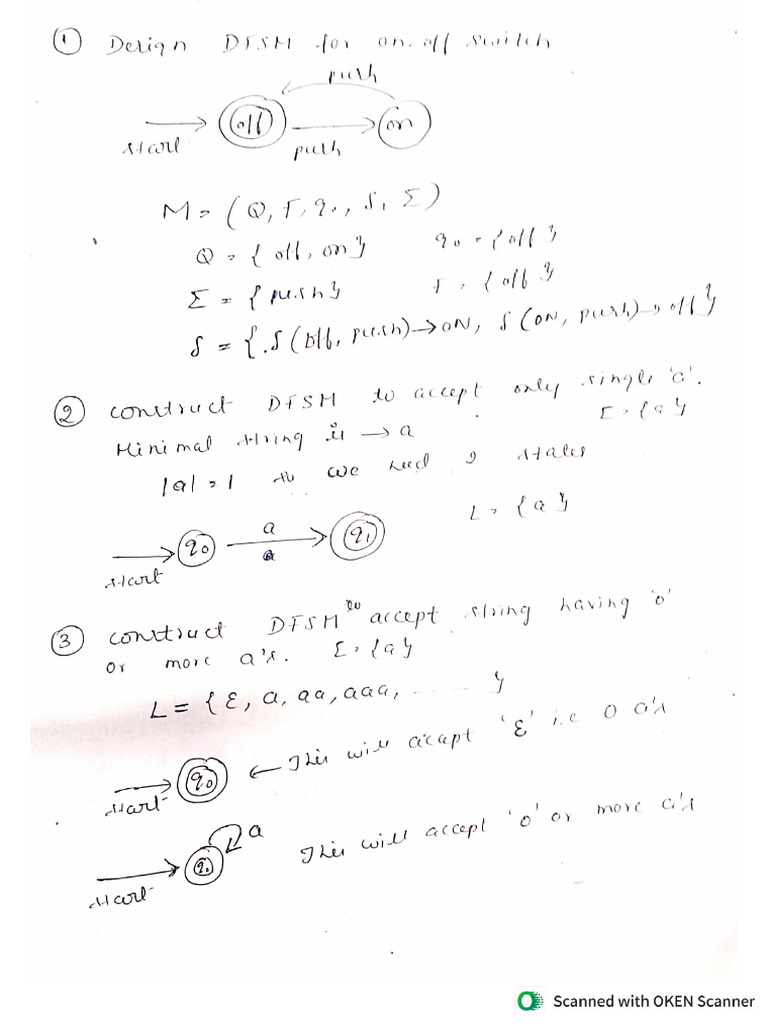 ① Design DFSM for on-off switch
push
start
off
push
on
M = (Q, F, q0, δ, Σ)
Q = {off, on} q0 = {off}
Σ = {push} F = {off}
δ = {δ(off, push)→ON, δ(ON, push)→off}
② construct DFSM to accept only single 'a'.
Minimal string is → a Σ = {a}
|a| = 1 so we need 2 states
L = {a}
start
q0
a
a
q1
③ construct DFSM to accept string having '0'
or more a's. Σ = {a}
L = {ε, a, aa, aaa, ------ }
start
q0
← This will accept 'ε' i.e 0 a's
start
q0
a
This will accept '0' or more a's
Scanned with OKEN Scanner